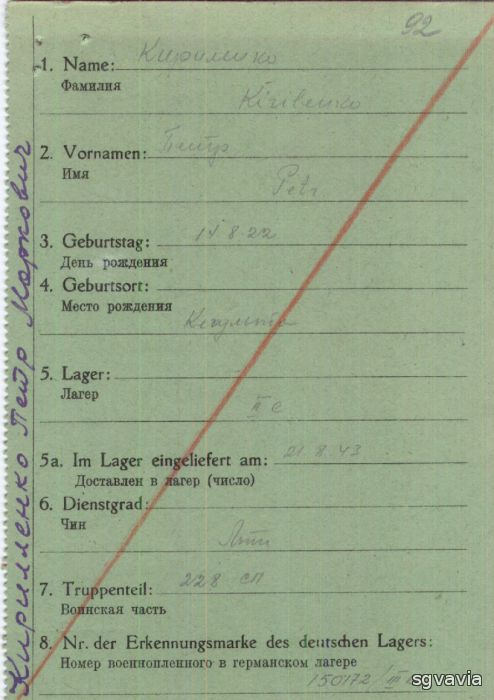 92
1. Name: Кириленко
Фамилия
Kirilenko
2. Vornamen: Петр
Имя
Petr
3. Geburtstag: 14 8 22
День рождения
4. Geburtsort:
Место рождения
5. Lager:
Лагер
II C
5a. Im Lager eingeliefert am: 21.8.43
Доставлен в лагер (число)
6. Dienstgrad:
Чин
7. Truppenteil: 228 сп
Воинская часть
8. Nr. der Erkennungsmarke des deutschen Lagers:
Номер военнопленного в германском лагере
150172 / III
Кирилленко Петр Маркович
sgvavia